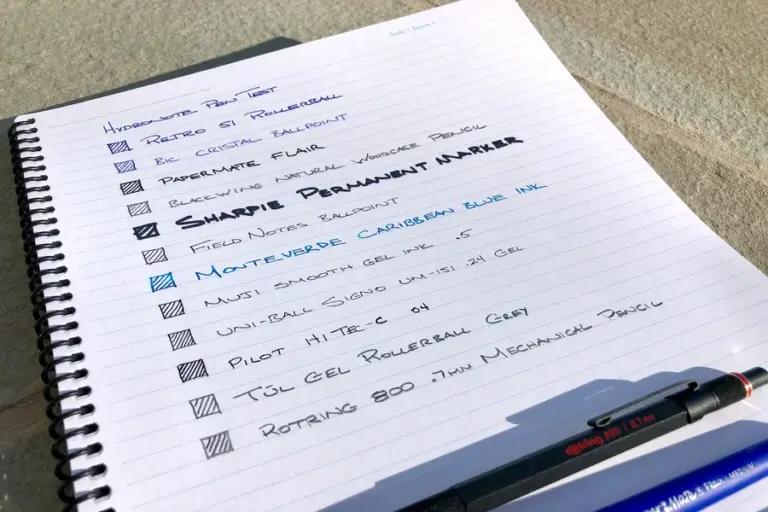 Hydronote Pen Test
Retro 51 Rollerball
Bic Cristal Ballpoint
PaperMate Flair
Blackwing Natural Woodcase Pencil
Sharpie Permanent Marker
Field Notes Ballpoint
Monteverde Caribbean Blue Ink
Muji Smooth Gel Ink .5
Uni-Ball Signo UM-151 .28 Gel
Pilot Hi Tec-C 04
Tül Gel Rollerball Grey
Rotring 800 .7mm Mechanical Pencil
rotring 800 | 0.7 mm